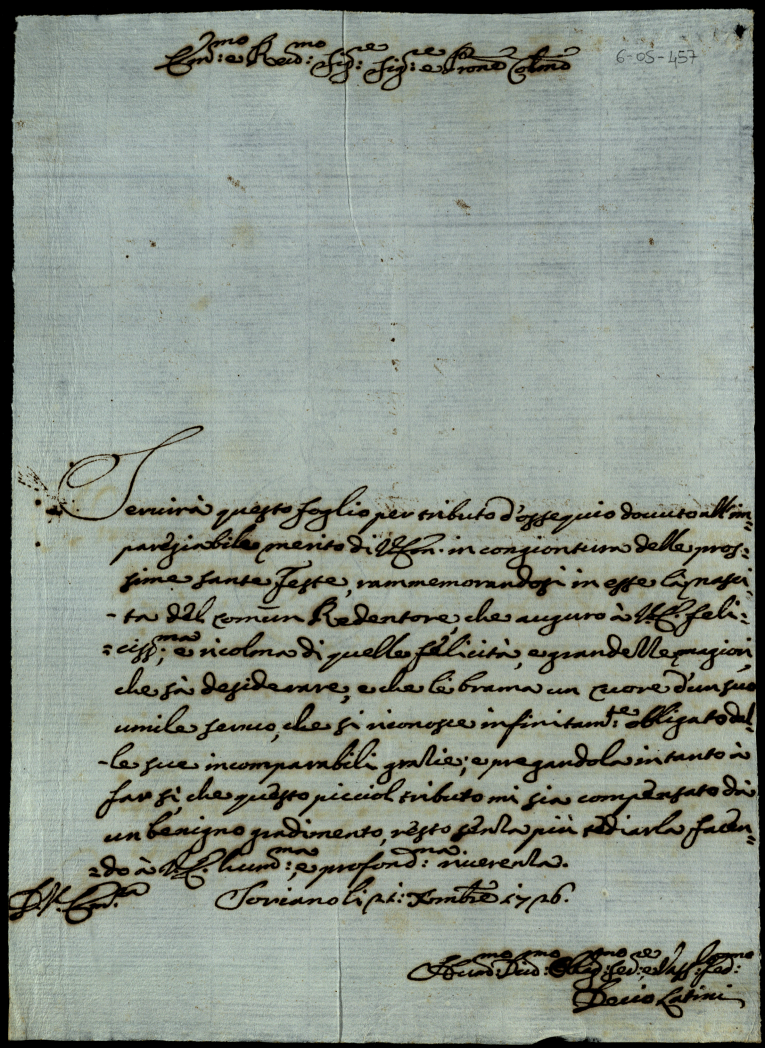 Em:mo e Reud:mo Sig:re Sig:re e Prone Colmo
6-05-457
Seruirà questo foglio per tributo d'ossequio douuto all'im-
paregiabile merito di V. Em. in congiontura delle pros=
sime sante Feste, rammemorandosi in esse la nasci-
-ta dèl comun Redentore, che auguro à V.E. feli=
=ciss:ma, e ricolma di quelle félicità, e grandelle magiori,
che sà desiderare, e che lè brama un cuore d'un suo
umile seruo, che si riconosce infinitam:te obligato del-
-le sue incomparabili gratie; e pregandola intanto à
far sì, che questo picciol tributo mi sia compensato dà
un benigno gradimento, resto senza più tèdiarla facen=
=do à V.E. hum:ma, e profond:ma riuerenza.
D. V. Em:za
Soriano li 21: Xmbre 1726.
Hum:mo Diu:mo Oblig:mo Ser:re e Vass: Fed:mo
Decio Latini